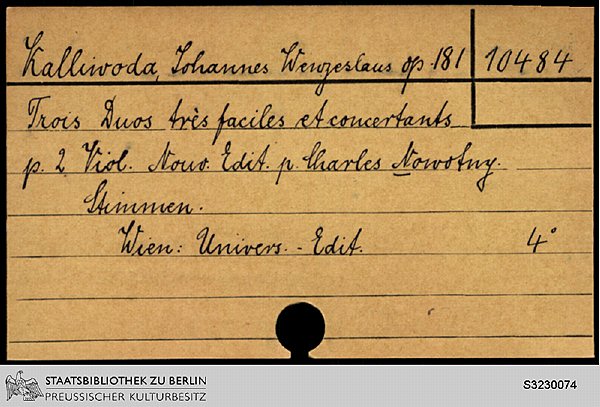 Kalliwoda, Johannes Wenzeslaus op. 181 10484
Trois Duos très faciles et concertants
p. 2 Viol. Nouv. Edit. p. Charles Nowotny.
Stimmen.
Wien: Univers.-Edit. 4°
STAATSBIBLIOTHEK ZU BERLIN
PREUSSISCHER KULTURBESITZ
S3230074